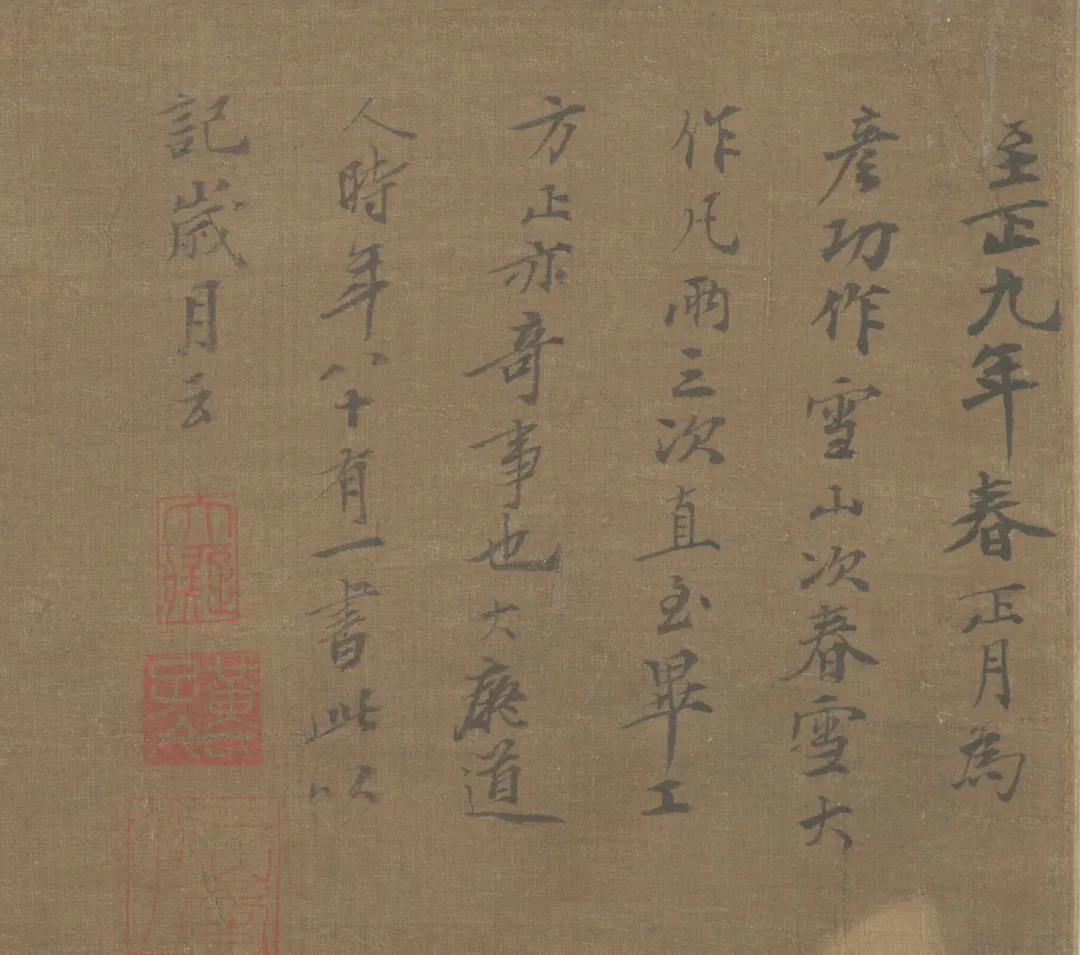 至正九年春正月為
彦功作雪山次春雪大
作凡兩三次直至畢工
方止亦奇事也大癡道
人時年八十有一書此以
記歲月云
大癡